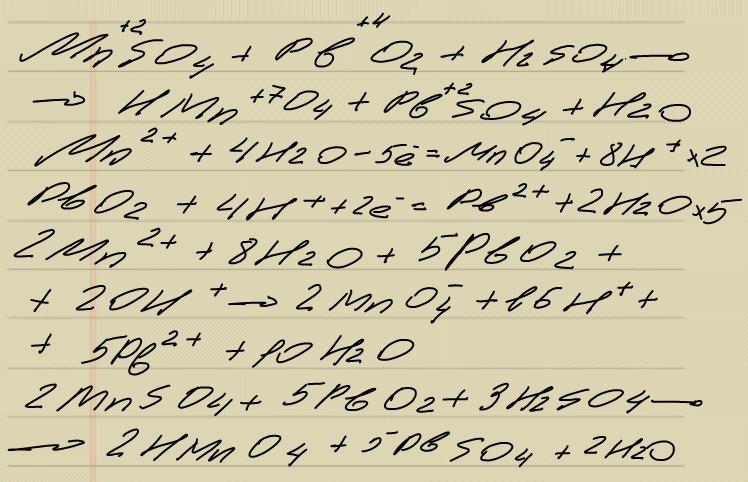 Mn⁺²SO₄ + Pb⁺⁴O₂ + H₂SO₄ →
→ HMn⁺⁷O₄ + Pb⁺²SO₄ + H₂O
Mn²⁺ + 4H₂O - 5e⁻ = MnO₄⁻ + 8H⁺ ×2
PbO₂ + 4H⁺ + 2e⁻ = Pb²⁺ + 2H₂O ×5
2Mn²⁺ + 8H₂O + 5PbO₂ +
+ 20H⁺ → 2MnO₄⁻ + 16H⁺ +
+ 5Pb²⁺ + 10H₂O
2MnSO₄ + 5PbO₂ + 3H₂SO₄ →
→ 2HMnO₄ + 5PbSO₄ + 2H₂O